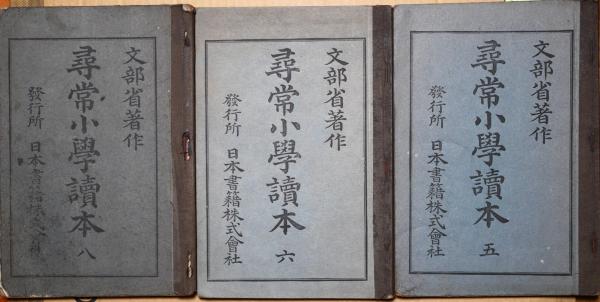 文部省著作
尋常小學讀本 五
發行所 日本書籍株式會社
文部省著作
尋常小學讀本 六
發行所 日本書籍株式會社
文部省著作
尋常小學讀本 八
發行所 日本書籍株式會社